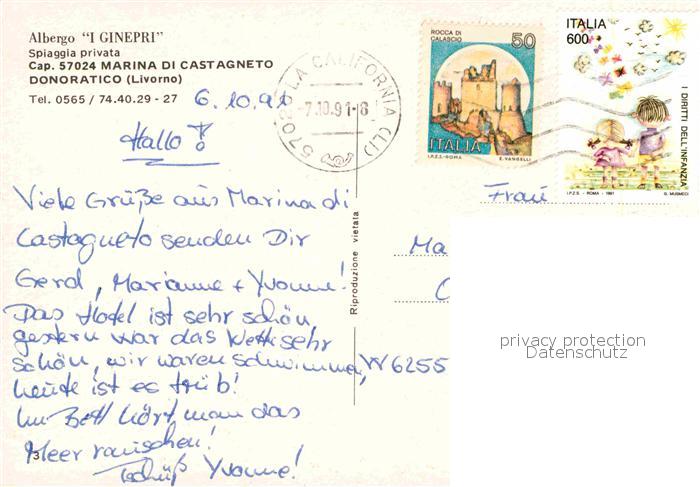 Albergo “I GINEPRI”
Spiaggia privata
Cap. 57024 MARINA DI CASTAGNETO
DONORATICO (Livorno)
Tel. 0565 / 74.40.29 - 27
6.10.91
57022 LA CALIFORNIA (LI)
-7.10.91-8
ROCCA DI
CALASCIO
50
ITALIA
I.P.Z.S.-ROMA E. VANGELLI
ITALIA
600
I DIRITTI DELL'INFANZIA
I.P.Z.S. - ROMA - 1991 G. MUSMECI
Hallo!
Viele Grüße aus Marina di
Castagneto senden Dir
Gerd, Marianne + Yvonne!
Das Hotel ist sehr schön
gestern war das Wetter sehr
schön, wir waren schwimmen,
heute ist es trüb!
Im Bett hört man das
Meer rauschen!
Tschüß Yvonne!
3
Riproduzione vietata
Frau
Ma
W 6255
privacy protection
Datenschutz